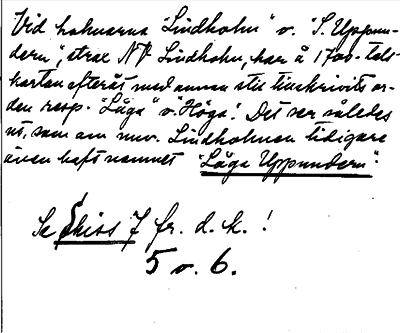 Vid holmarna "Lindholm" o. "S. Uppun-
dern", strax NV Lindholm, har å 1700-tals-
kartan efteråt med annan stil tillskrivits or-
den resp. "Låga" o "Höga". Det ser således
ut, som om nuv. Lindholmen tidigare
även haft namnet "Låga Uppundern".
Se Skiss 7 fr. d. k.!
5 o. 6.